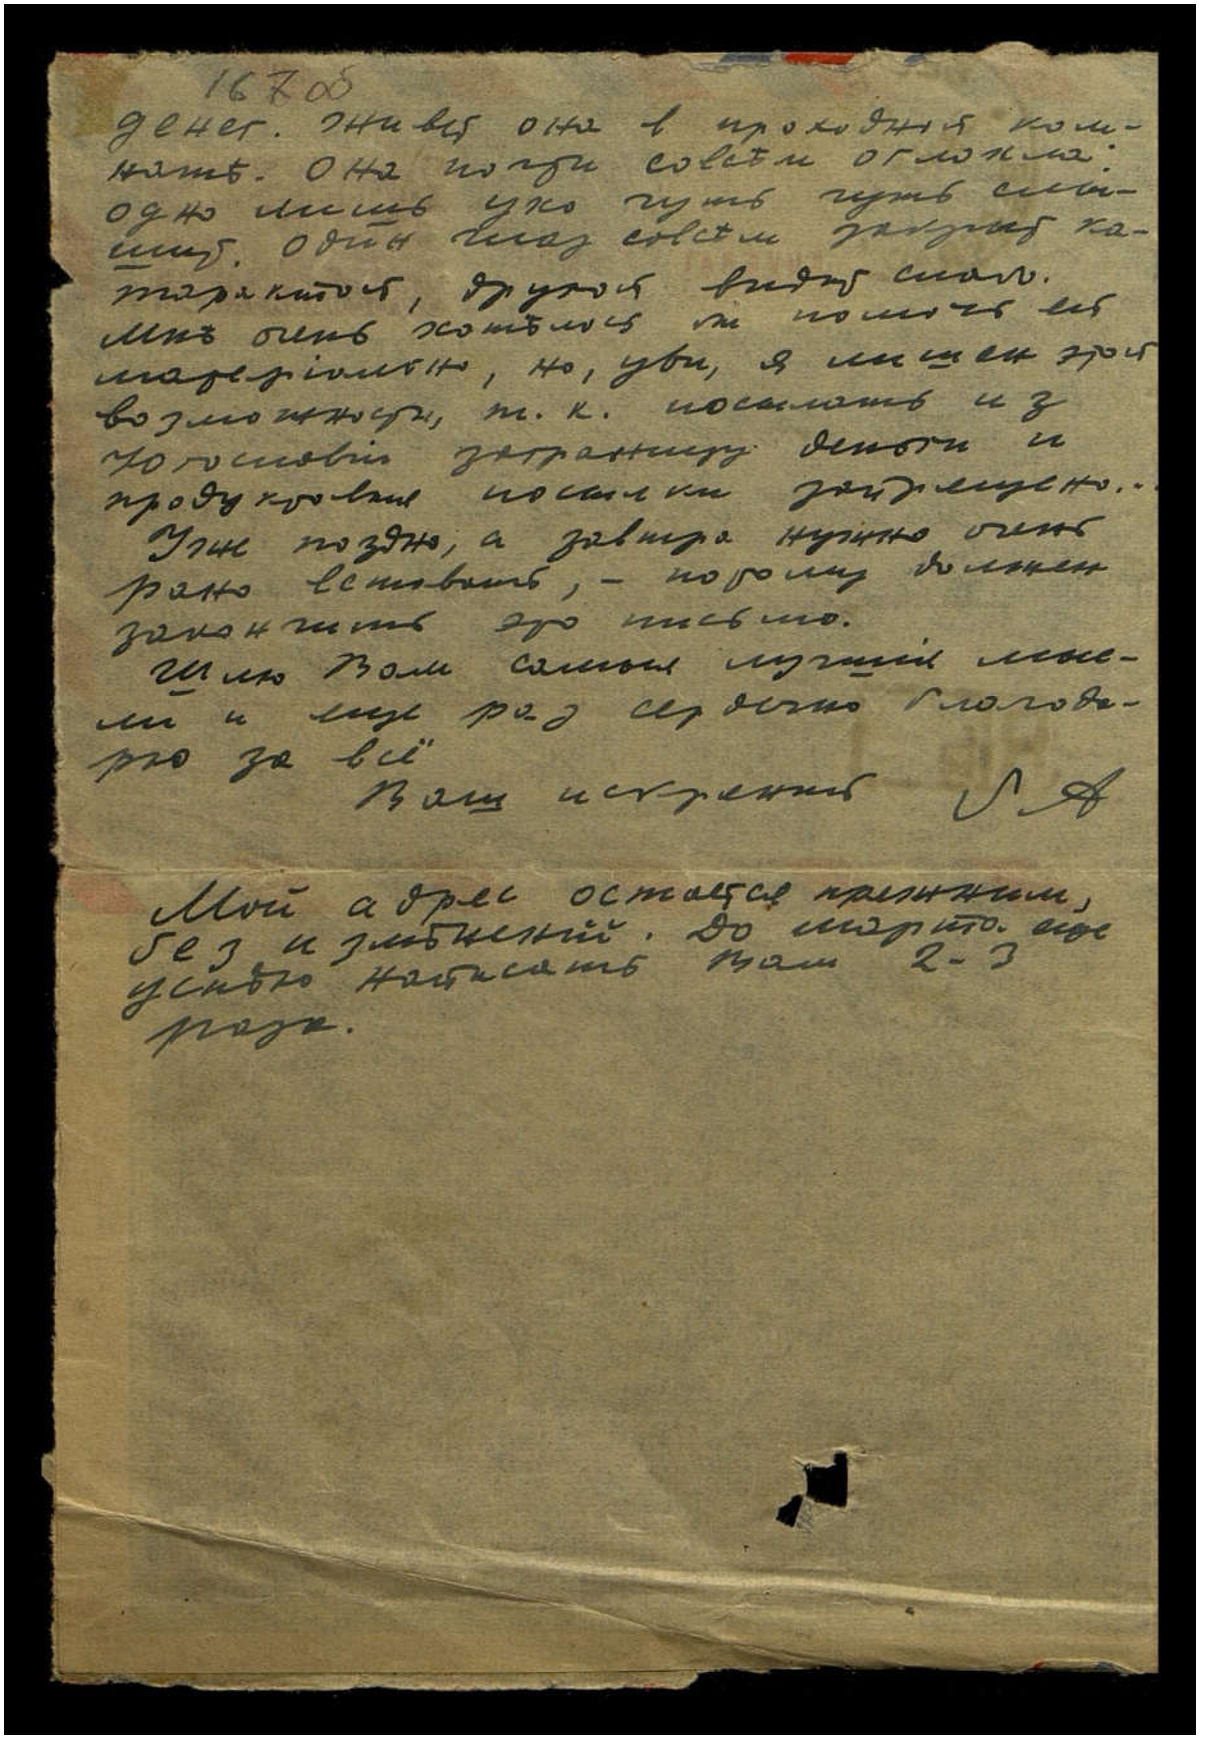 167 об
денег. Живет она в проходной ком-
натѣ. Она почти совсѣм оглохла:
одно лишь ухо чуть чуть слы-
шит. Один глаз совсѣм закрыт ка-
тарактой, другой видит слабо.
Мнѣ очень хотѣлось бы помочь ей
матеріально, но, увы, я лишен этой
возможности, т. к. посылать из
Югославіи заграницу деньги и
продуктовыя посылки запрещено...
Уже поздно, а завтра нужно очень
рано вставать, – потому должен
закончить это письмо.
Шлю Вам самыя лучшія мыс-
ли и еще раз сердечно благода-
рю за всё
Ваш искренний
Мой адрес остается прежним,
без измѣнений. До марта еще
успѣю написать Вам 2-3
раза.